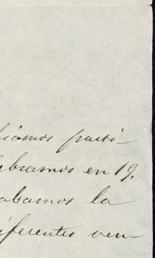 liamos parti-
lebramos en 19.
abamos la
iferentes ven-